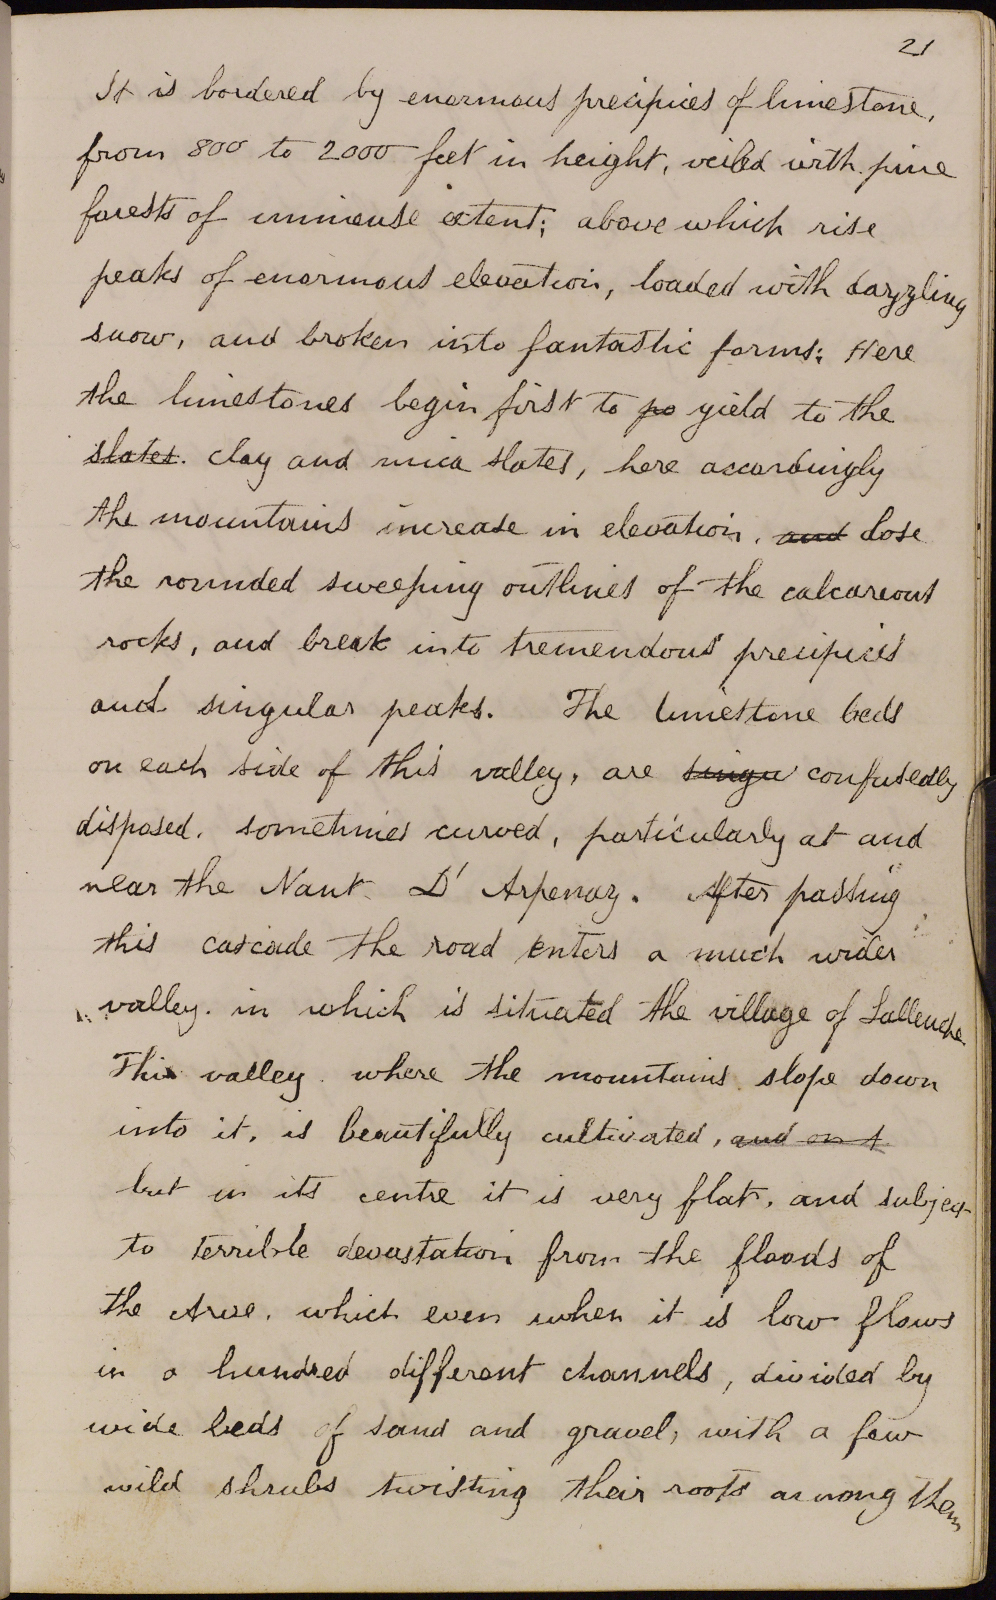 21
It is bordered by enormous precipices of limestone,
from 800 to 2000 feet in height, veiled with pine
forests of immense extent; above which rise
peaks of enormous elevation, loaded with dazzling
snow, and broken into fantastic forms; Here
the limestones begin first to po yield to the
slates. clay and mica slates, here accordingly
the mountains increase in elevation, and lose
the rounded sweeping outlines of the calcareous
rocks, and break into tremendous precipices
and singular peaks. The limestone beds
on each side of this valley, are singu confusedly
disposed. sometimes curved, particularly at and
near the Nant D' Arpenaz. After passing
this cascade the road enters a much wider
valley. in which is situated the village of Sallenche.
This valley where the mountains slope down
into it, is beautifully cultivated, and on t
but in its centre it is very flat, and subject
to terrible devastation from the floods of
the Arve. which even when it is low flows
in a hundred different channels, divided by
wide beds of sand and gravel, with a few
wild shrubs twisting their roots among them